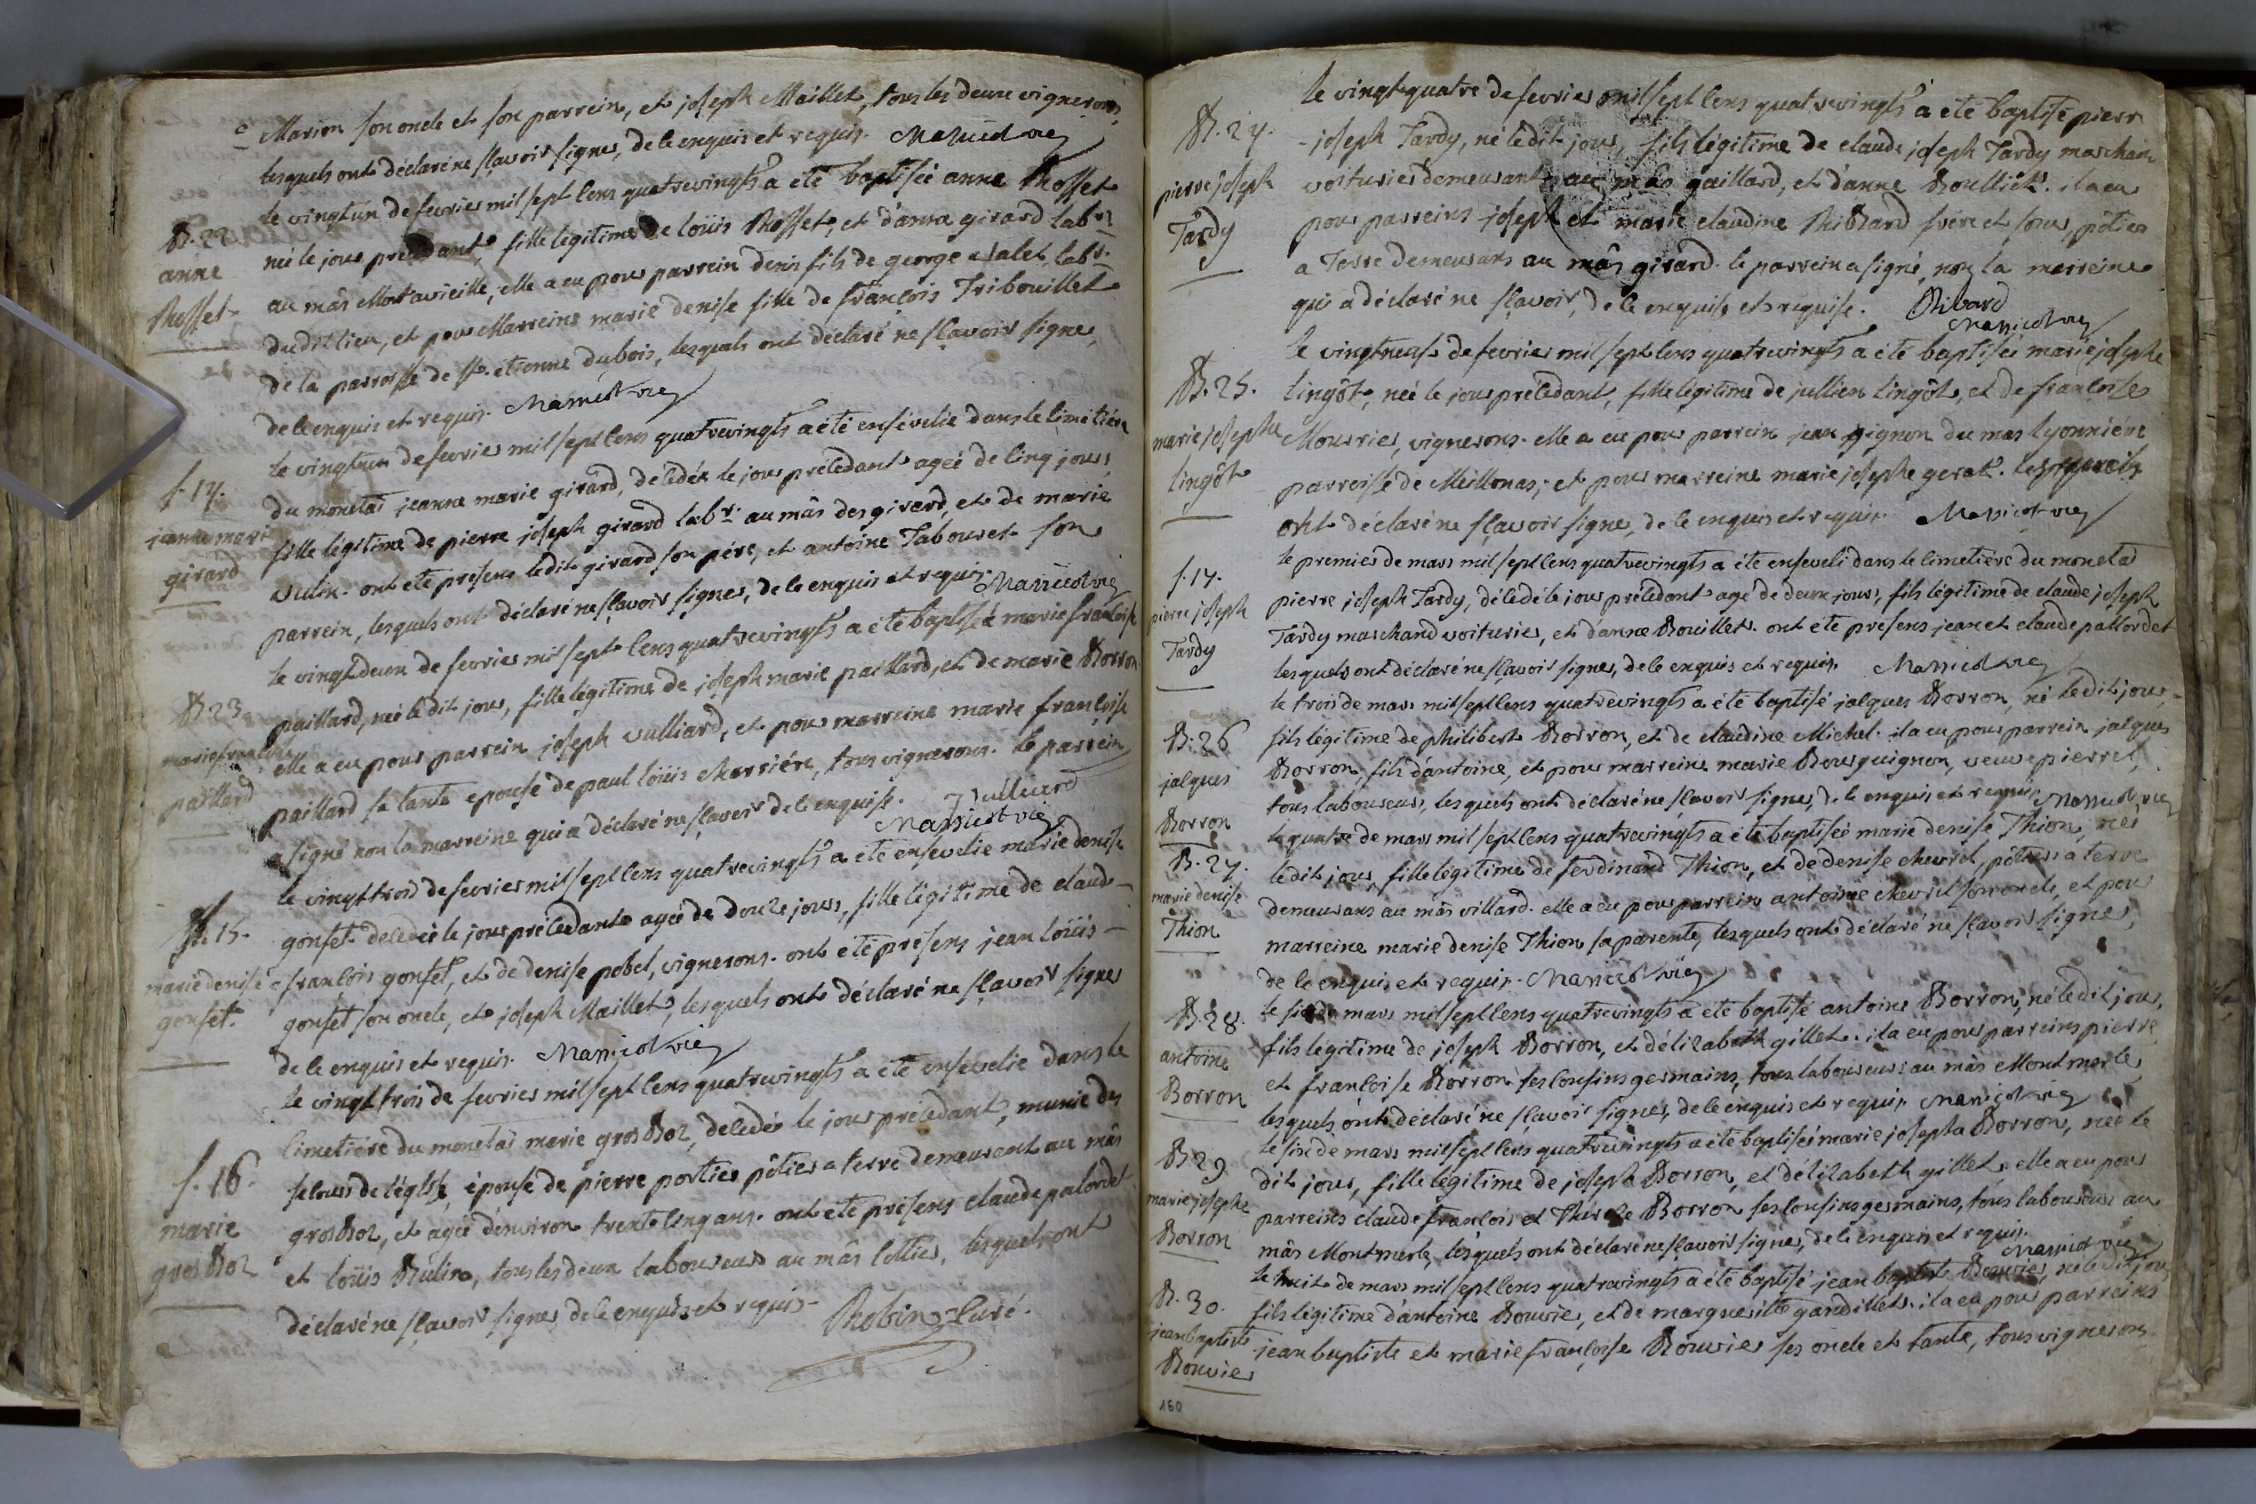 Marion son oncle et son parrein, et joseph Maillet, tous les deux vignerons,
lesquels ont déclaré ne sçavoir signer, de ce enquis et requis. Manicot vic
B. 22
anne
Rosset
le vingtun de fevrier mil sept cens quatrevingts a été baptisée anne Rosset
née le jour précédant, fille légitime de loüis Rosset, et d'anne girard labr.
au mâs Montavieille, elle a eu pour parrein denis fils de george valet labr.
dudit lieu, et pour Marreine marie denise fille de françois Tribouillet
de la parroisse de st. etienne dubois, lesquels ont déclaré ne sçavoir signer,
de ce enquis et requis. Manicot vic
f. 14.
jeanne marie
girard
le vingtun de fevrier mil sept cens quatrevingts a été ensévelie dans le cimetière
du monetai jeanne marie girard, décédée le jour précédant agée de cinq jours,
fille légitime de pierre joseph girard labr. au mâs des girard, et de marie
vulin. ont été présens ledit girard son pére, et antoine Tabouret son
parrein, lesquels ont déclaré ne sçavoir signer, de ce enquis et requis. Manicot vic
B. 23
marie françoise
paillard
le vingtdeux de fevrier mil sept cens quatrevingts a été baptisée marie françoise
paillard, née ledit jour, fille légitime de joseph marie paillard, et de marie Borron
elle a eu pour parrein joseph vulliard, et pour marreine marie françoise
paillard sa tante epouse de paul loüis charriére, tous vignerons. le parrein
a signé non la marreine qui a déclaré ne sçavoir de ce enquise. J Vulliard
Manicot vic
f. 15.
marie denise
gonset.
le vingt trois de fevrier mil sept cens quatrevingts a été ensevelie marie denise
gonset décédée le jour précédant agée de douze jours, fille légitime de claude
françois gonset, et de denise pobel, vignerons. ont été présens jean loüis
gonset son oncle, et joseph Maillet, lesquels ont déclaré ne sçavoir signer
de ce enquis et requis. Manicot vic
f. 16.
marie
grosBoz
le vingt trois de fevrier mil sept cens quatrevingts a été ensevelie dans le
cimetière du monetai marie grosBoz, décédée le jour précédant, munie des
secours de l'église, épouse de pierre portier pôtier a terre demeurant au mâs
grosBoz, et agée d'environ trente cinq ans. ont été présens claude palordet
et loüis Rulin, tous les deux laboureurs au mâs lottier, lesquels ont
déclaré ne sçavoir signer de ce enquis et requis - Robin Curé.
B. 24.
pierre joseph
Tardy
le vingtquatre de fevrier mil sept cens quatrevingts a été baptisé pierre
joseph Tardy, né ledit jour, fils légitime de claude joseph Tardy marchand
voiturier demeurant au mâs gaillard, et d'anne Roulliet. il a eu
pour parreins joseph et marie claudine Ribard frére et sœur, pôtier
a Terre demeurans au mâs girard. le parrein a signé, non la marreine
qui a déclaré ne sçavoir, de ce enquise et requise. Ribard
Manicot vic
B. 25.
marie josephe
lingôt
le vingtneuf de fevrier mil sept cens quatrevingts a été baptisée marie josephe
lingôt, née le jour précédant, fille légitime de jullien lingôt, et de françoise
Mourrier, vignerons. elle a eu pour parrein jean pignon du mas lyonniére
parroisse de Meillonas, et pour marreine marie josephe gerat. lesquels
ont déclaré ne sçavoir signer, de ce enquis et requis. Manicot vic
f. 17.
pierre joseph
Tardy
le premier de mars mil sept cens quatrevingts a été enseveli dans le cimetiére du monetai
pierre joseph Tardy, décédé le jour précédant agé de deux jours, fils légitime de claude joseph
Tardy marchand voiturier, et d'anne Rouillet. ont été présens jean et claude pallordet
lesquels ont déclaré ne sçavoir signer, de ce enquis et requis. Manicot vic
B. 26
jacques
Borron
le trois de mars mil sept cens quatrevingts a été baptisé jacques Borron, né ledit jour,
fils légitime de philibert Borron, et de claudine Michel. il a eu pour parrein jacques
Borron, fils d'antoine, et pour marreine marie Bourguignon, veuve pierret,
tous laboureurs, lesquels ont déclaré ne sçavoir signer, de ce enquis et requis. Manicot vic
B. 27.
marie denise
Thion
le quatre de mars mil sept cens quatrevingts a été baptisée marie denise Thion, née
ledit jour, fille légitime de ferdinand Thion, et de denise chevret, pôtiers a terre
demeurans au mâs villard. elle a eu pour parrein antoine chevret son oncle, et pour
marreine marie denise Thion sa parente, lesquels ont déclaré ne sçavoir signer,
de ce enquis et requis. Manicot vic
B. 28.
antoine
Borron
le six de mars mil sept cens quatrevingts a été baptisé antoine Borron, né ledit jour,
fils légitime de joseph Borron, et d'élizabeth gillet. il a eu pour parreins pierre
et françoise Borron ses cousins germains, tous laboureurs au mâs Montmerle,
lesquels ont déclaré ne sçavoir signer, de ce enquis et requis Manicot vic
B. 29
marie josephe
Borron
le six de mars mil sept cens quatrevingts a été baptisée marie josephe Borron, née le
dit jour, fille légitime de joseph Borron, et d'élizabeth gillet. elle a eu pour
parreins claude françois et Thérèze Borron ses cousins germains, tous laboureurs au
mâs Montmerle, lesquels ont déclaré ne sçavoir signer, de ce enquis et requis.
Manicot vic
B. 30.
jean baptiste
Rouvier
le huit de mars mil sept cens quatrevingts a été baptisé jean baptiste Rouvier, né ledit jour
fils légitime d'antoine Rouvier, et de marguerite gandillet. il a eu pour parreins
jean baptiste et marie françoise Rouvier ses oncle et tante, tous vignerons
160